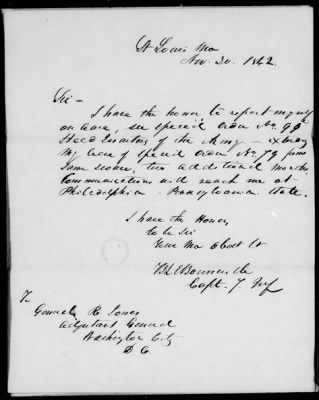 St Louis Mo
Nov. 20. 1842.
Sir
I have the honor to report myself
on leave, see special order No. 99
Head Quarters of the Army
my leave of special order No 79 from
same source, two additional months
Communications will reach me at
Philadelphia - Pennsylvania State.
I have the Honor
to be Sir
Your Mo Obdt St
Capt. 7. Inf
To
General R. Jones
Adjutant General
Washington City
D C.